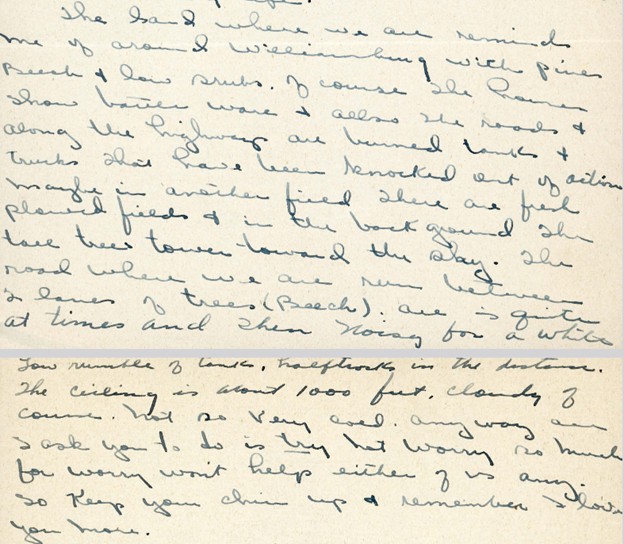 The land where we are reminds
me of around Williamsburg with pines
Beech & low srubs. Of course the homes
show battle ware & allso the roads &
along the highways are burned tanks &
trucks that have been knocked out of action
maybe in another field there are fresh
plowed fields & in the back ground the
tall trees tower toward the sky. The
road where we are run between
2 lanes of trees (Beech). all is quite
at times and then Noisy for a while
Low rumble of tanks, halftracks in the distance.
The ceiling is about 1000 feet, cloudy of
course. Not so very cold. Anyway all
I ask you to do is try not worry so much
for worry won't help either of us any.
So Keep your chin up & remember I love
you more.